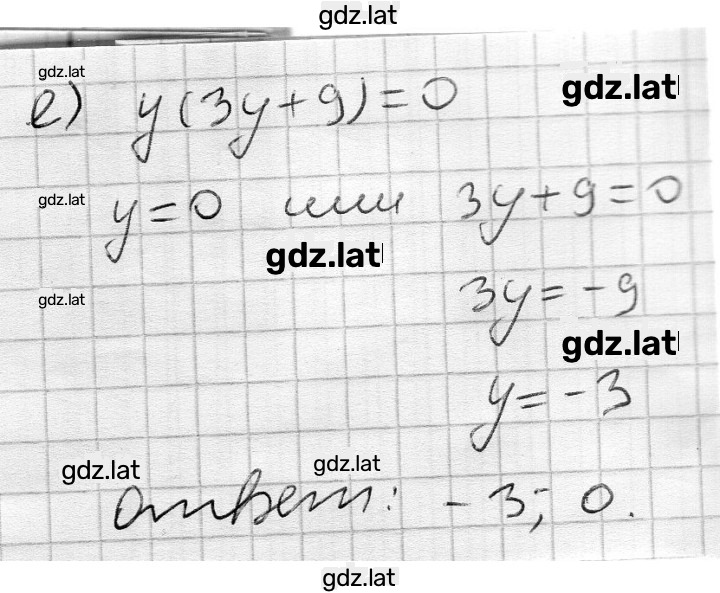 gdz.lat
gdz.lat
е) y(3y+9)=0 gdz.lat
gdz.lat
y=0 или 3y+9=0
gdz.lat
gdz.lat
3y=-9
gdz.lat
y=-3
gdz.lat gdz.lat
Ответ: -3; 0.
gdz.lat